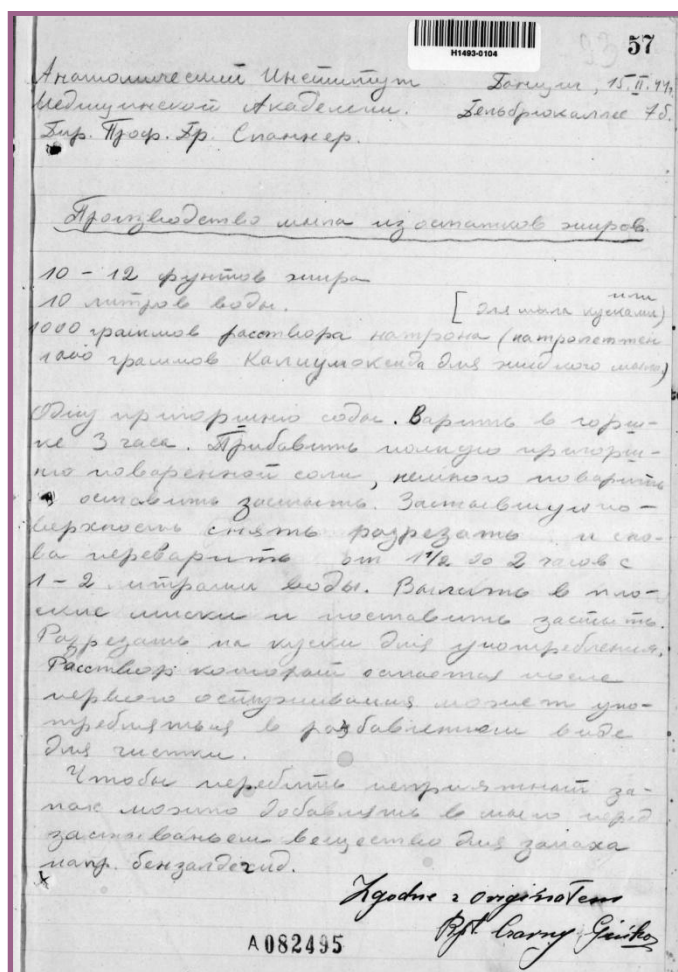 H1493-0104
93 57
Анатомический Институт Данциг, 15.II.44.
Медицинской Академии. Дельбрюкаллее 7б.
Дир. Проф. Др. Спаннер.
Производство мыла из остатков жиров.
10 – 12 фунтов жира
10 литров воды. [для мыла кусками) или
1000 граммов расствора натрона (натролеттен
1000 граммов Калиумоксида для жидкого мыла)
Одну пригоршню соды. Варить в горш-
ке 3 часа. Прибавить полную пригорш-
ню поваренной соли, немного поварить
оставить застыть. Застывшую по-
верхность снять разрезать и сно-
ва переварить от 1 1/2 до 2 часов с
1 – 2 литрами воды. Вылить в пло-
ские миски и поставить застыть.
Разрезать на куски для употребления.
Расствор который остается после
первого остуживания может упо-
требляться в разбавленном виде
для чистки.
Чтобы перебить неприятный за-
пах можно добавлять в мыло перед
застываньем вещество для запаха
напр. бензалдехид.
Zgodne z oryginałem
A082495